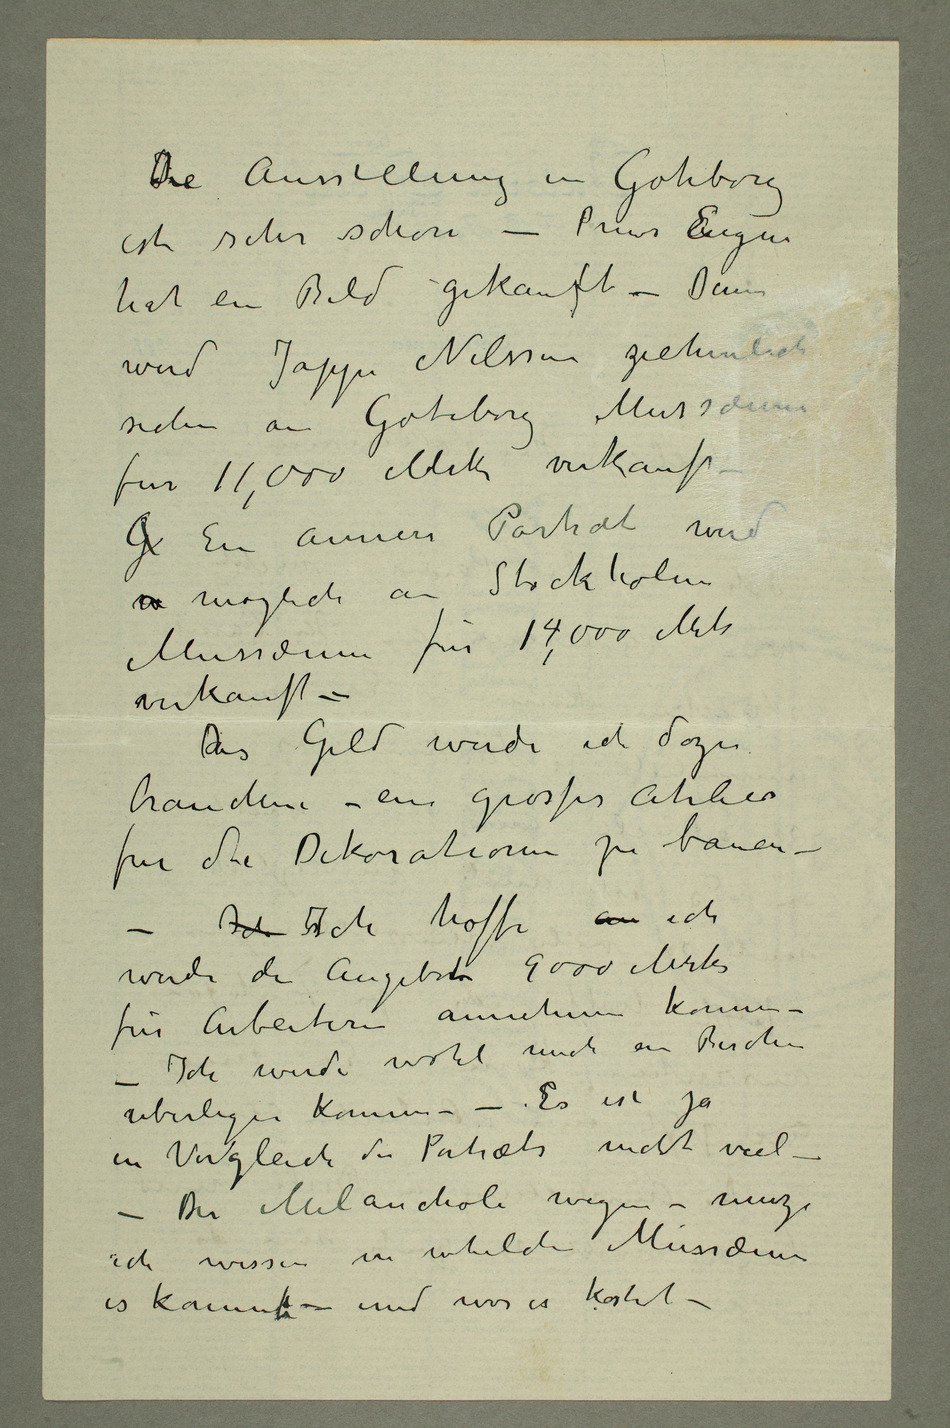 Die Ausstellung in Goteborg
ist sehr schön — Prins Eugen
hat ein Bild gekauft — Dann
wird Jappe Nilssen ziehmlich
sicher an Goteborg Mussæum
fur 11,000 Mrk verkauft —
Ein annere Portræt wird
möglich an Stockholm
Mussæum für 14,000 Mk
verkauft —
Das Geld werde ich dazu
brauchen – ein grosses Atelier
fur die Dekorationen zu bauen —
— Ich Ich hoffe an ich
werde die Angebot 9000 Mrk
für Arbeitern annehmen können —
— Ich werde wohl mich ein Bischen
uberlegen können — — Es ist ja
in Vergleich die Portræts nicht viel —
— Der Melancholi wegen – musz
ich wissen in welche Mussæum
es kommt — und was es kostet —